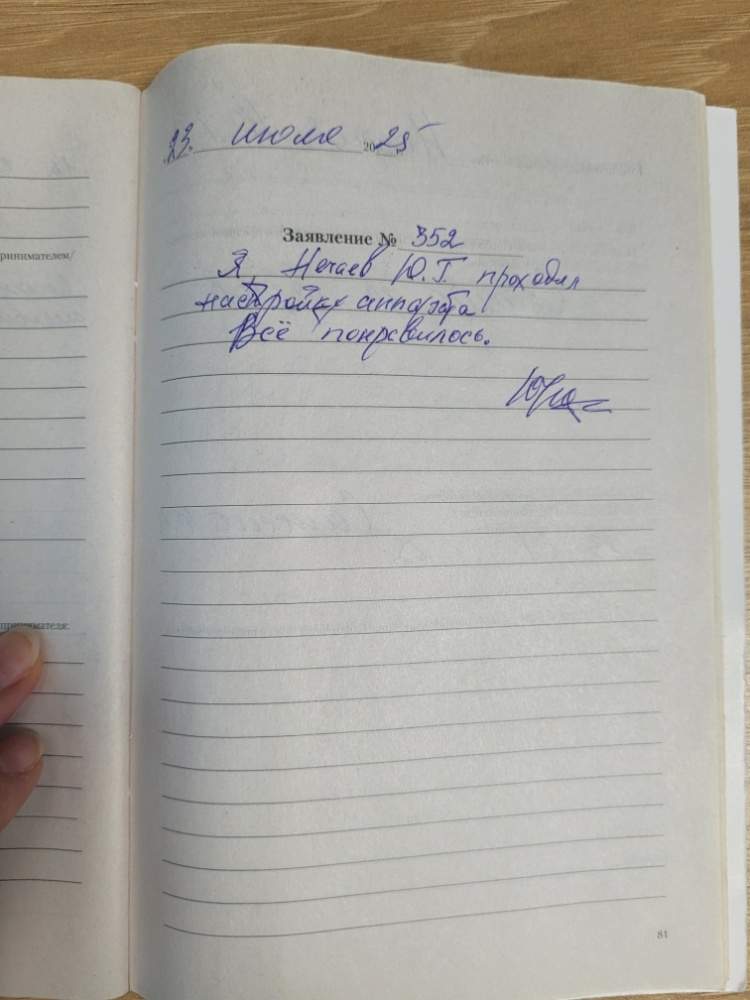 23. июля 2025
ринимателем/
Заявление № 352
Я, Нечаев Ю.Г. проходил
настройку аппарата
Всё понравилось.
принимателя:
81